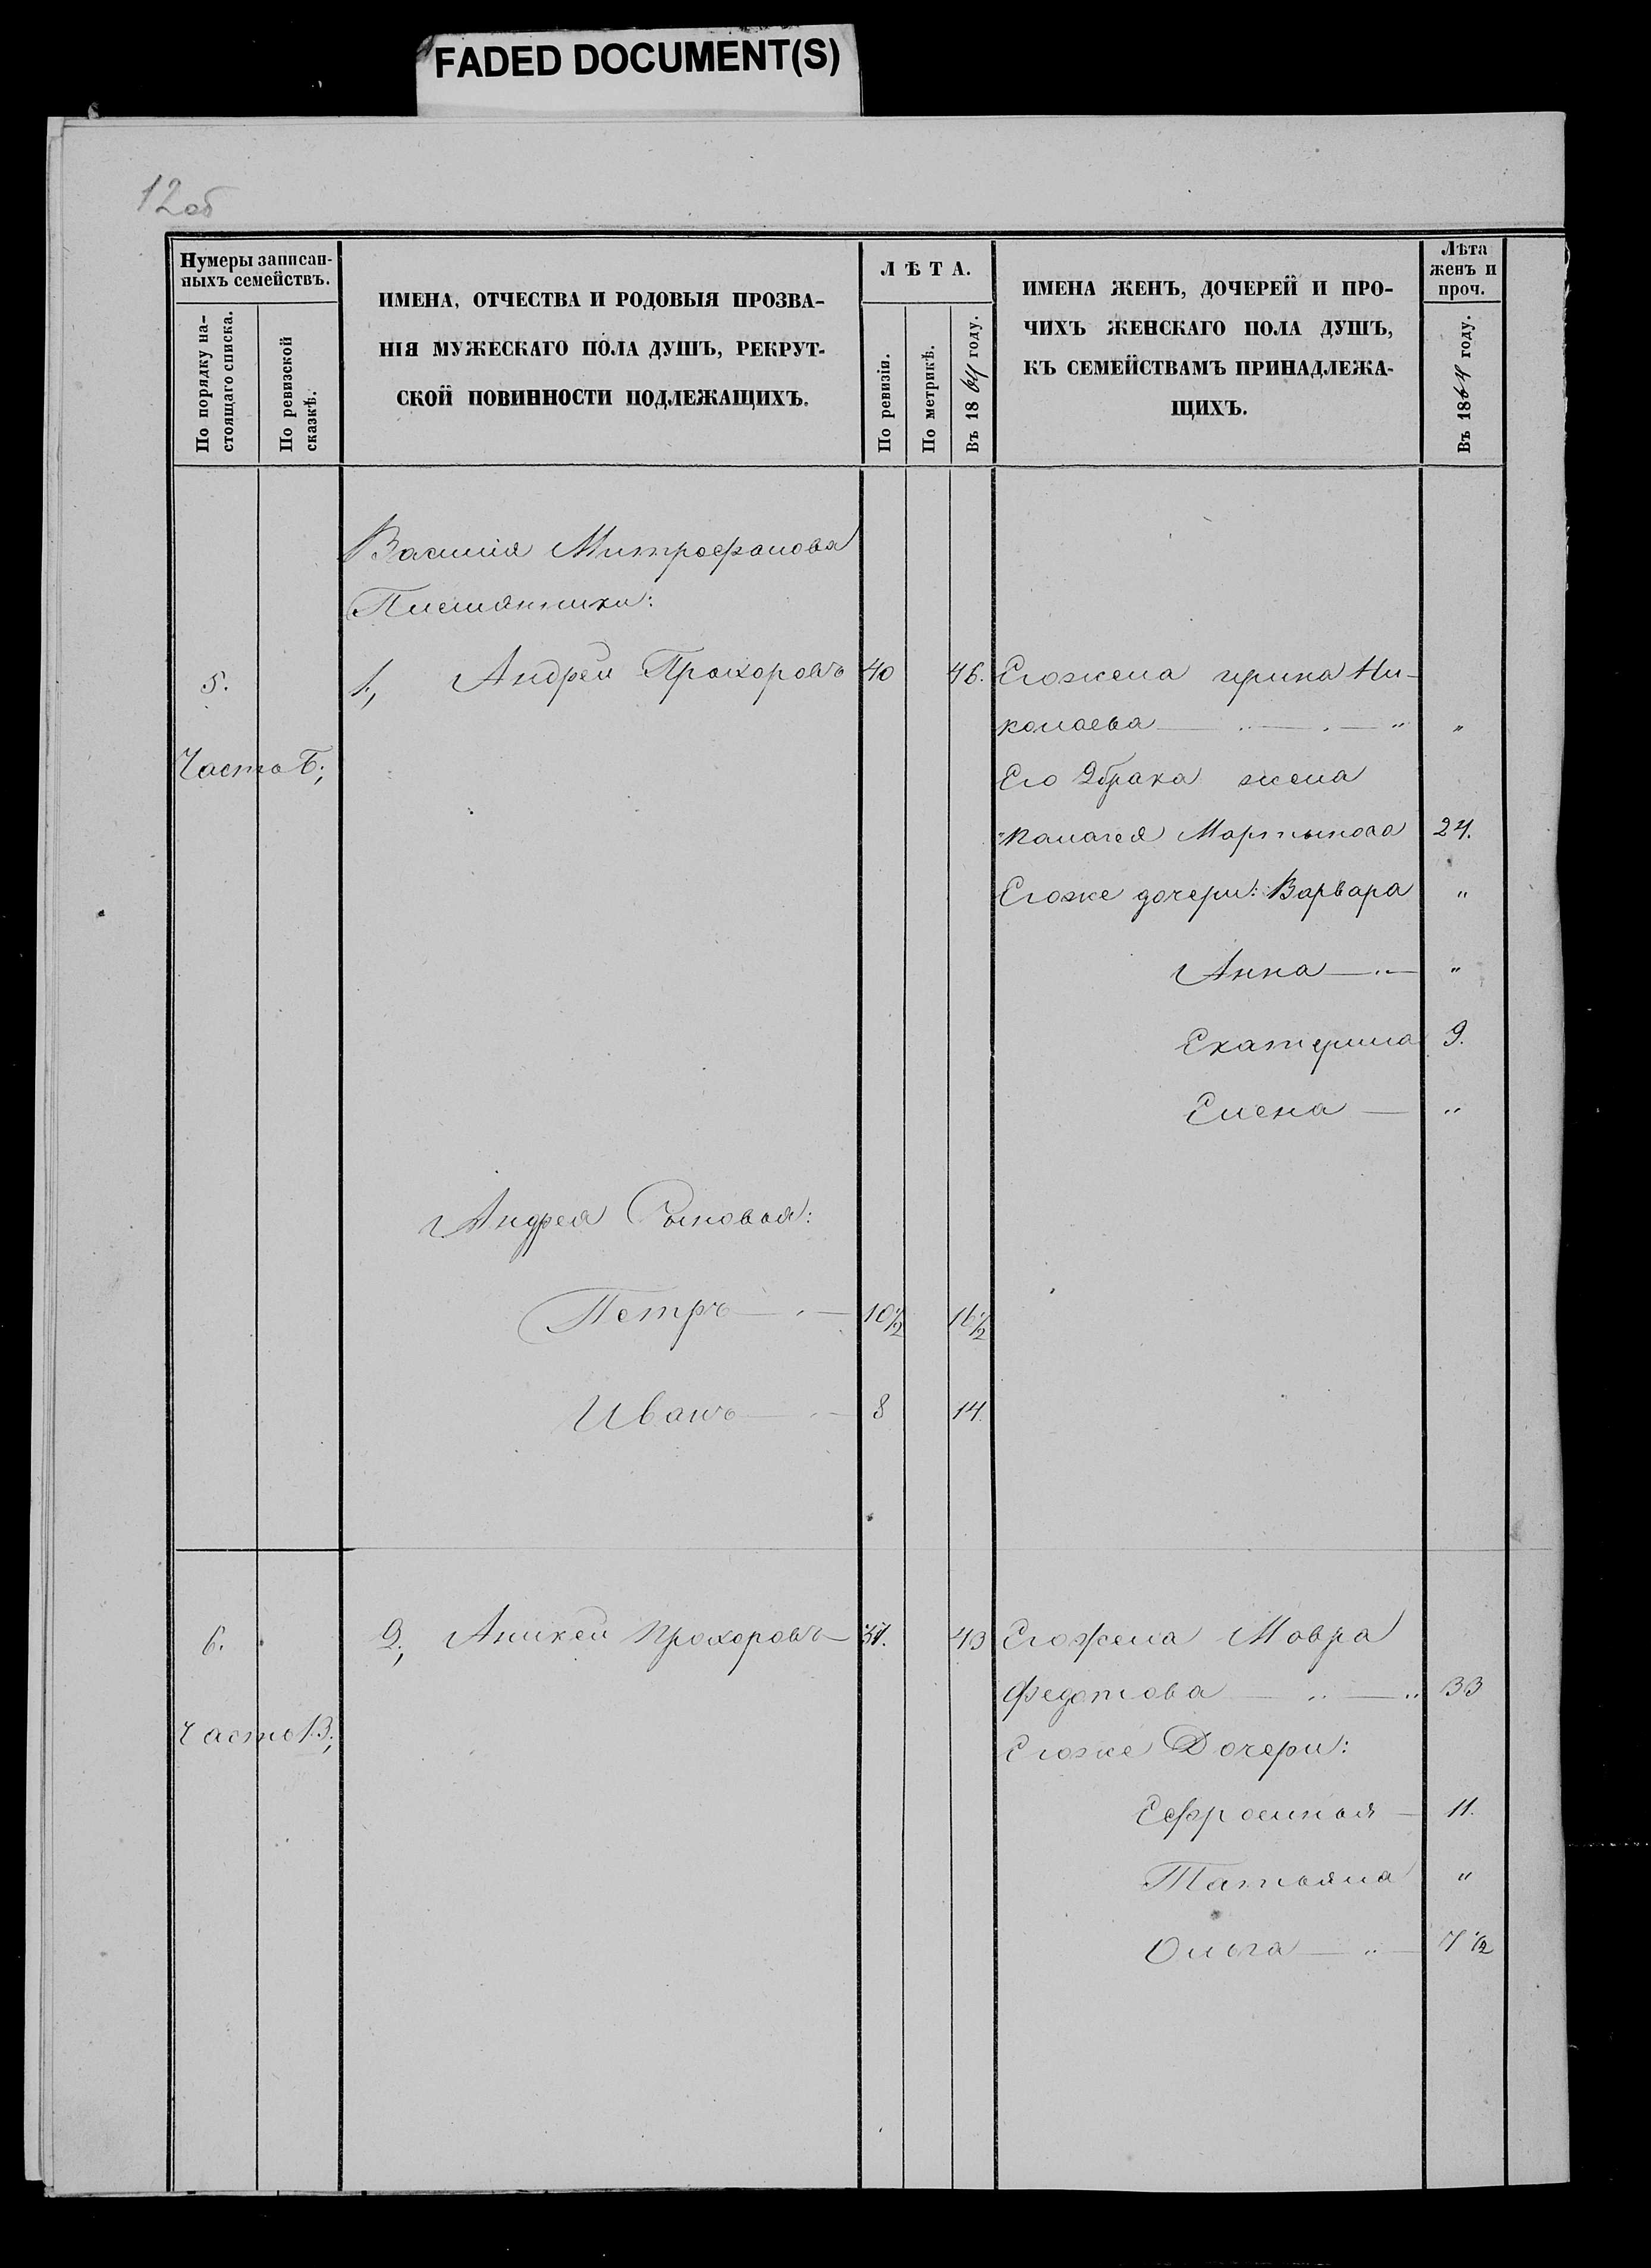 FADED DOCUMENT(S)
12об
Нумеры записан-
ныхъ семействъ.
По порядку на-
стоящаго списка.
По ревизской
сказкѣ.
ИМЕНА, ОТЧЕСТВА И РОДОВЫЯ ПРОЗВА-
НІЯ МУЖЕСКАГО ПОЛА ДУШЪ, РЕКРУТ-
СКОЙ ПОВИННОСТИ ПОДЛЕЖАЩИХЪ.
ЛѢТА.
По ревизіи.
По метрикѣ.
Въ 1864 году.
ИМЕНА ЖЕНЪ, ДОЧЕРЕЙ И ПРО-
ЧИХЪ ЖЕНСКАГО ПОЛА ДУШЪ,
КЪ СЕМЕЙСТВАМЪ ПРИНАДЛЕЖА-
ЩИХЪ.
Лѣта
женъ и
проч.
Въ 1864 году.
Василія Митрофанова
Племянники:
5. 1, Андрей Прохоровъ 40 46. Его жена ирина Ни-
колаева — " — . — " "
Часть Б;
Его 2 брака жена
Палагея Мартынова 24.
Его же дочери: Варвара "
Анна — " — "
Екатерина 9.
Елена — "
Андрея Сыновья:
Петръ — " — 10½ 16½
Иванъ — " — 8 14.
6. 2, Аникей Прохоровъ — 37. 43 Его жена Мавра
Федотова — " — " 33
Часть В;
Его же Дочери:
Ефросинья — 11.
Татьяна "
Ольга — " — 7½